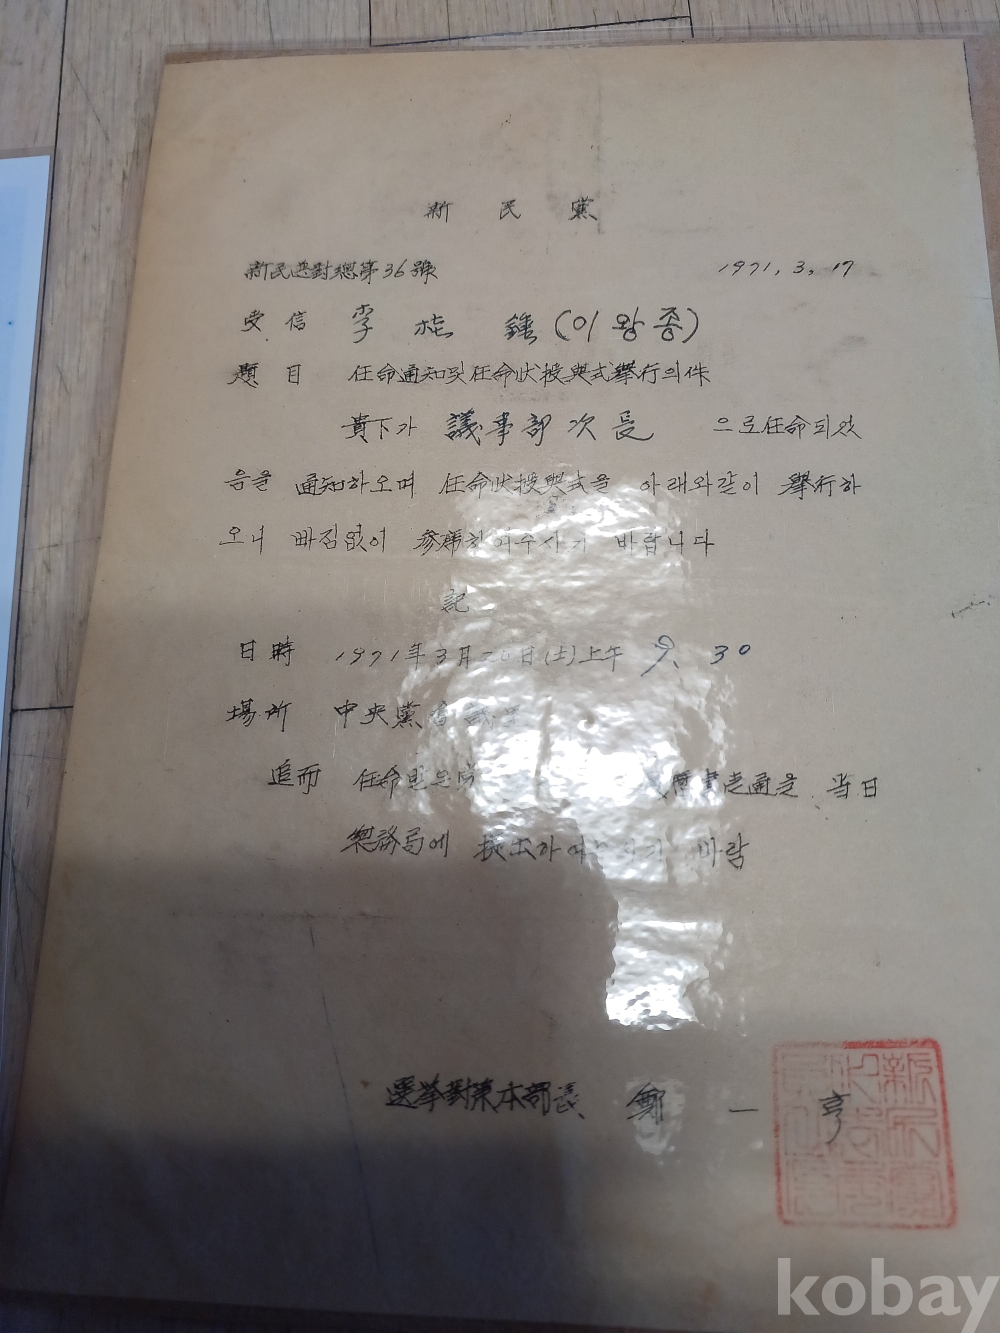 新民黨
新民選對總第36號 1971. 3. 17
受信 李 鍾 (이왕종)
題目 任命通知및任命狀授與式擧行의件
貴下가 議事部次長 으로任命되었
음을 通知하오며 任命狀授與式을 아래와같이 擧行하
오니 빠짐없이 參席하여주시기 바랍니다
記
日時 1971年3月20日(土)上午 9. 30
場所 中央黨會議室
追而 任命받은 壱通을 当日
總務局에 提出하여주시기 바람
選挙對策本部長 鄭一亨
kobay